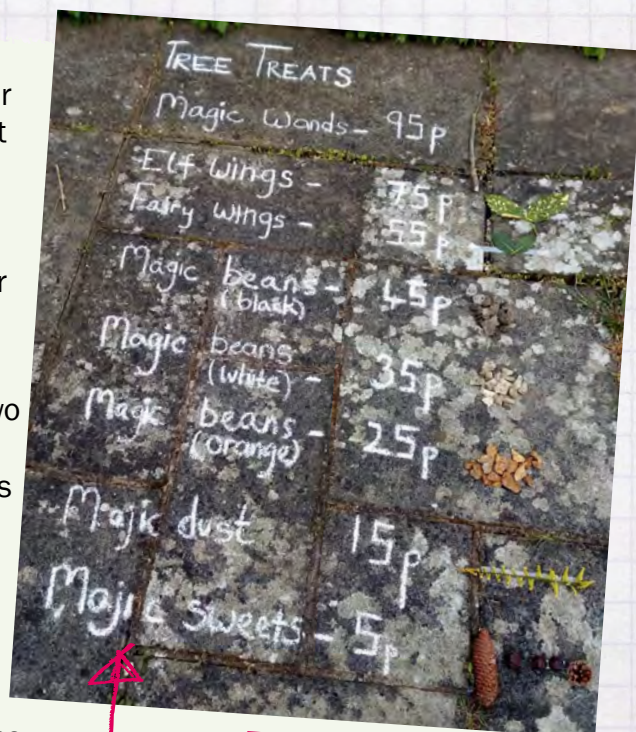 TREE TREATS
Magic Wands - 95p
Elf wings - 75p
Fairy wings - 55p
Magic beans - 45p
(black)
Magic beans
(white) - 35p
Magic beans - 25p
(orange)
Majic dust 15p
Majic sweets - 5p